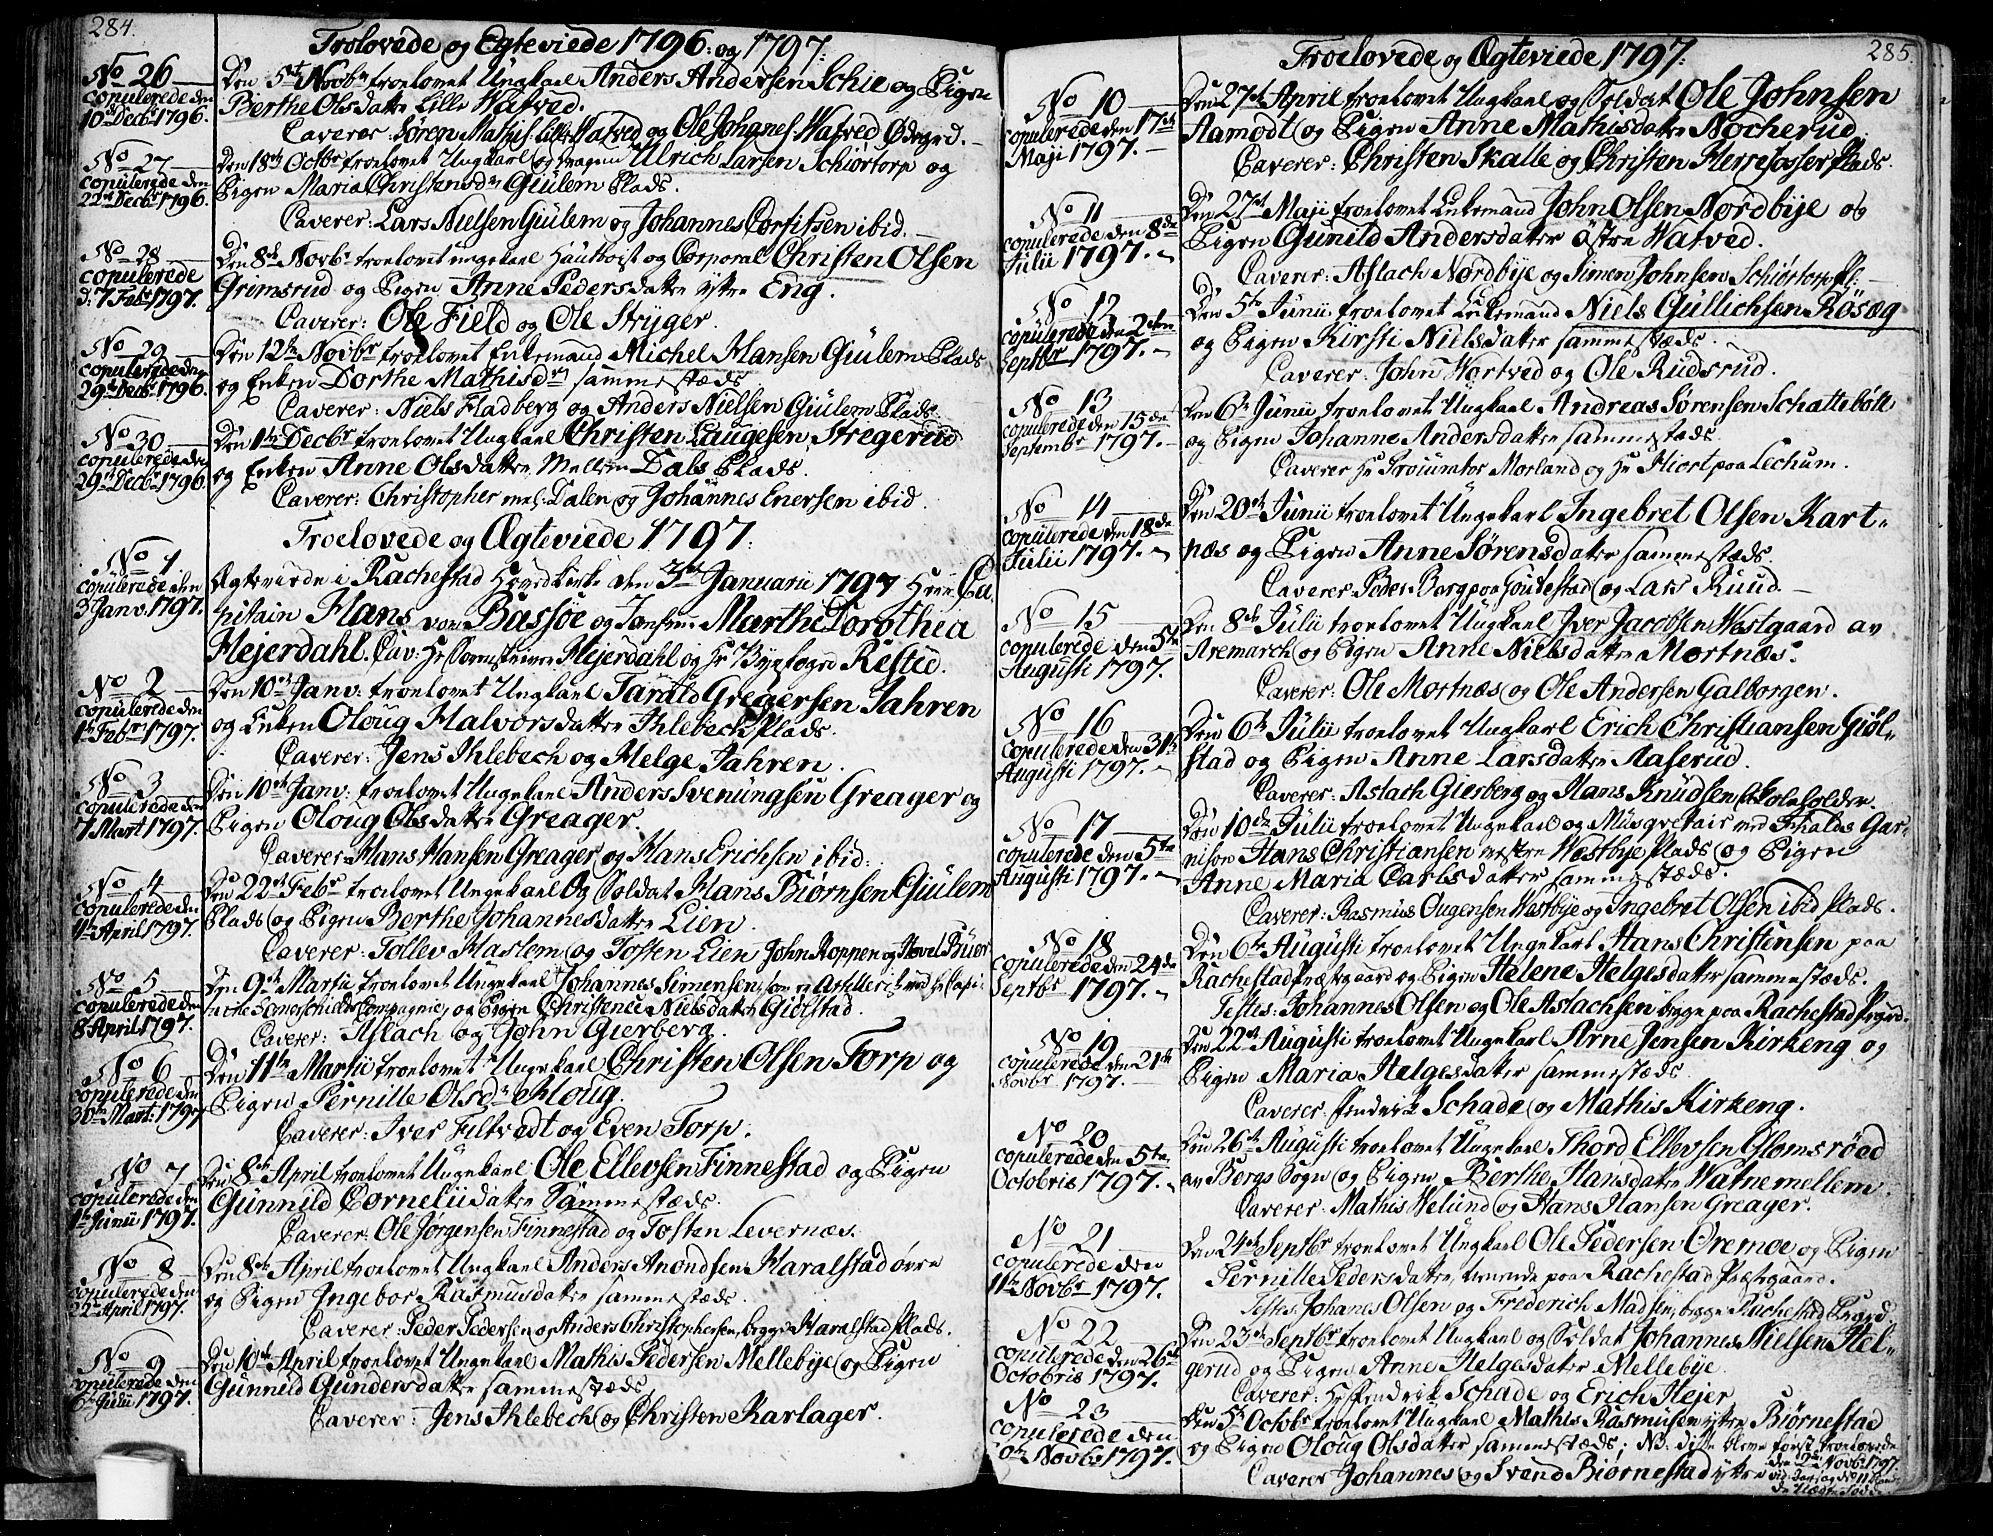 284.
Trolovede og Egteviede 1796: og 1797:
No 26
copulerede den
10de Decbr 1796.
Den 5te Novbr troelovet Ungkarl Anders Andersen Schie og Pigen
Berthe Olsdatter Lille Watved.
Caverer: Søren Mathis: Lille Watved og Ole Johanes: Watved Ødegrd.
No 27
copulerede den
22de Decbr 1796.
Den 18de Octbr troelovet Ungkarl og Dragun Ulrich Larsen Schiørtorp og
Pigen Maria Christensdr Giulem Plads.
Caverer: Lars Nielsen Giulem og Johannes Corfitsen ibid.
No 28
copulerede
d: 7 Febr 1797.
Den 8de Novbr troelovet ungekarl Hautboist og Corporal Christen Olsen
Gremsrud og Pigen Anne Pedersdatter ystre Eng.
Caverer: Ole Field og Ole Stryger.
No 29
copulerede den
29de Decbr 1796.
Den 12te Novbr troelovet Enkemand Michel Hansen Giulem Plads
og Enken Dorthe Mathisdr sammestæds
Caverer: Niels Fladberg og Anders Nielsen Giulem Plads.
No 30
copulerede den
29de Decbr 1796
Den 1te Decbr troelovet Ungkarl Christen Laugesen Stregerud
og Enken Anne Olsdatter Mellem Dals Plads
Caverer: Christopher mel: Dalen og Johannes Enersen ibid.
Troelovede og Ægteviede 1797:
No 1
copulerede den
3 Janv. 1797.
Ægteviede i Rachestad Hovedkirke den 3die Januarii 1797 Herr Ca-
pitain Hans von Bassøe og Jomfrue Marthe Dorothea
Hejerdahl. Cav: Hr Sorenskriver Hejerdahl og Hr Byefoged Rested.
No 2
copulerede den
1te Febr 1797.
Den 10de Janv: troelovet Ungkarl Tarald Gregersen Jahren
og Enken Oloug Halvorsdatter Ihlebech Plads.
Caverer: Jens Ihlebech og Helge Jahren.
No 3
copulerede den
7 Mart 1797.
Den 10de Janv: troelovet Ungekarl Anders Svenungsen Greager og
Pigen Oloug Olsdatter Greager.
Caverer: Hans Hansen Greager og Hans Erichsen ibid:
No 4
copulerede den
4de April 1797.
Den 22de Febr troelovet Ungekarl Og Soldat Hans Biørnsen Giulem
Plads og Pigen Berthe Johannesdatter Lien.
Caverer: Tollev Haslem og Tosten Lien John Koppen og Hovel Buer
No 5
copulerede den
8 April 1797.
Den 9de Martii troelovet Ungekarl Johannes Simensen, som er Artillerist ved Hr Capi-
taine Somerschilds Compagnie, og Pigen Christence Nielsdatter Giølstad.
Caverer: Aslach og John Gierberg.
No 6
copulerede den
30te Mart: 1797
Den 11te Martii troelovet Ungekarl Christen Olsen Torp og
Pigen Pernille Olsdr Kloug.
Caverer: Iver Filtvedt og Even Torp.
No 7
copulerede den
1te Junii 1797.
Den 8de April troelovet Ungekarl Ole Ellevsen Finnestad og Pigen
Gunnild Corneliidatter Sammestæds.
Caverer: Ole Jørgensen Finnestad og Tosten Levernæs.
No 8
copulerede den
22 April 1797.
Den 8de April troelovet Ungekarl Anders Amondsen Haralstad øvre
og Pigen Ingebor Rasmusdatter sammestæds.
Caverer: Peder Pedersen og Anders Christophersen, begge Haralstad Plads.
No 9
copulerede den
6te Julii 1797.
Den 10de April troelovet Ungekarl Mathis Pedersen Mellebye og Pigen
Gunnild Gundersdatter sammestæds
Caverer: Jens Ihlebech og Christen Karlager.
285
Troelovede og Ægteviede 1797:
No 10
copulerede den 17de
Maji 1797.
Den 27de April troelovet Ungkarl og Soldat Ole Johnsen
Aamodt og Pigen Anne Mathisdatter Nocherud.
Caverer: Christen Skalle og Christen Herrefosser Plads.
No 11
copulerede den 8de
Julii 1797.
Den 27de Maji troelovet Enkemand John Olsen Nordbye og
Pigen Gunild Andersdatter østre Watved.
Caverer: Aslach Nordbye og Simen Johnsen Schiørtorp Pl:
No 12
copulerede den 2den
Septbr 1797.
Den 5te Junii troelovet Enkemand Niels Gullichsen Røsæg
og Pigen Kirsti Nielsdatter sammestæds.
Caverer: John Wortved og Ole Rudsrud.
No 13
copulerede den 15de
Septembr 1797.
Den 6te Junii troelovet Ungkarl Andreas Sørensen Schattebøll
og Pigen Johanne Andersdatter sammestæds.
Caverer Hr Morland og Hr Hiort paa Lechum.
No 14
copulerede den 18de
Julii 1797.
Den 20de Junii troelovet Ungekarl Ingebret Olsen Kart-
næs og Pigen Anne Sørensdatter sammestæds.
Caverer Peder Berg paa Soudestad og Lars Ruud.
No 15
copulerede den 5te
Augusti 1797.
Den 8de Julii troelovet Ungkarl Iver Jacobsen Westgaard av
Aremarch og Pigen Anne Nielsdatter Mortnæs.
Caverer: Ole Mortnæs og Ole Andersen Galborgen.
No 16
copulerede den 31te
Augusti 1797.
Den 6te Julii troelovet Ungkarl Erich Christiansen Giøl-
stad og Pigen Anne Larsdatter Aaserud.
Caverer: Aslach Gierberg og Hans Knudsen Skoleholder.
No 17
copulerede den 5te
Augusti 1797.
Den 10de Julii troelovet Ungekarl og Musqveteir ved Fhalds Gar-
nison Hans Christiansen nestre Westbye Plads og Pigen
Anne Maria Carlsdatter sammestæds.
Caverer: Rasmus Ougensen Westbye og Ingebret Olsen ibid Plads.
No 18
copulerede den 24de
Septbr 1797.
Den 6te Augusti troelovet Ungekarl Hans Christensen paa
Rachestad Præstgaard og Pigen Helene Helgesdatter sammestæds.
Testes: Johannes Olsen og Ole Aslachsen begge paa Rachestad Prgrd.
No 19
copulerede den 21de
Novbr 1797.
Den 22de Augusti troelovet Ungekarl Arne Jensen Kirkeng og
Pigen Maria Helgesdatter sammestæds
Caverer: Fendrich Schade og Mathis Kirkeng.
No 20
copulerede den 5te
Octobris 1797.
Den 26de Augusti troelovet Ungekarl Thord Ellevsen Glomsrøed
av Bergs Sogn og Pigen Berthe Hansdatter Watnemellem.
Caverer: Mathis Welund og Hans Hansen Greager.
No 21
copulerede den
11te Novbr 1797.
Den 24de Septbr troelovet Ungkarl Ole Pedersen Oremoe og Pigen
Pernille Pedersdatter, tienende paa Rachestad Præstgaard.
Testes: Johanes Olsen og Frederich Madsen, begge Rachestad Prgrd.
No 22
copulerede den 26de
Octobris 1797.
Den 23de Septbr troelovet Ungkarl og Soldat Johannes Nielsen Hel-
gerud og Pigen Anne Helgesdatter Mellebye.
Caverer: Hr Fendrich Schade og Erich Hejer
No 23
copulerede den
Novbr 1797.
Den 5te Octobr troelovet Ungekarl Mathis Rasmusen ystre Biørnestad
og Pigen Oloug Olsdatter sammestæds; NB: disse bleve først troelovede
den Novbr 1797.
Caverer Johannes og Svend Biørnestad ystre